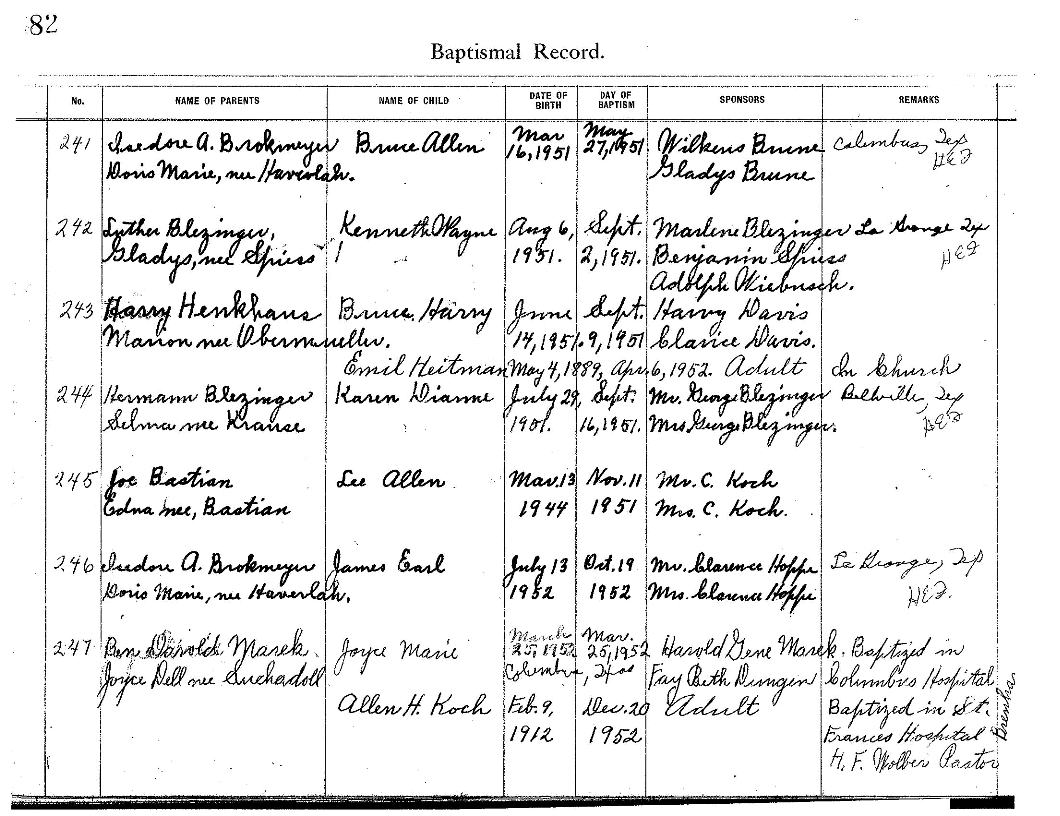 82
Baptismal Record.
No. NAME OF PARENTS NAME OF CHILD DATE OF BIRTH DAY OF BAPTISM SPONSORS REMARKS
241 Isedore A. Brokmeyer Bruce Allen Mar May Wilkens Brune Columbus, Tex
Doris Marie, nee Haverlah. 16, 1951 27, 1951. Gladys Brune
242 Luther Blezinger, Kenneth Wayne Aug 6, Sept. Marlene Blezinger La Grange Tex
Gladys, nee Spiess 1951. 2, 1951. Benjamin Spiess
Adolph Wiebusch.
243 Harry Henkhaus Bruce Harry June Sept. Harvy Davis
Marion nee Obermueller. 14, 1951. 9, 1951 Clarice Davis.
Emil Heitman May 4, 1889, Apr. 6, 1952. Adult In Church
244 Hermann Blezinger Karen Dianne July 29, Sept. Mr. George Blezinger Bellville, Tex
Selma nee Krause 1951. 16, 1951. Mrs George Blezinger.
245 Joe Bastian Lee Allen Mar. 13 Nov. 11 Mr. C. Koch
Edna nee, Bastian 1944 1951 Mrs. C. Koch.
246 Isedore A. Brokmeyer James Earl July 13 Oct. 19 Mr. Clarence Hoppe La Grange, Tex
Doris Marie, nee Haverlah, 1952 1952 Mrs. Clarence Hoppe
247 Ben Darold Marek. Joyce Marie March 25, 1952 Mar. 25, 1952 Harold Gene Marek. Baptized in
Joyce Dell nee Suchadoll Columbus, Texas Fay Beth Dungen Columbus Hospital
Allen H. Koch Feb. 9, Dec. 20 Adult Baptized in St.
1912 1952 Frances Hospital Brenham
H. F. Wolber Pastor